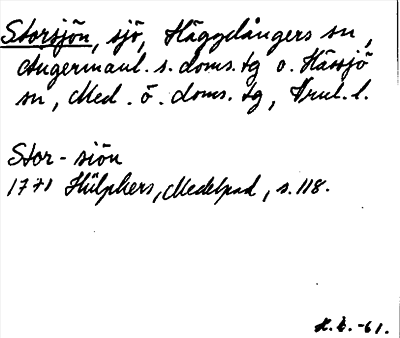 Storsjön, sjö, Häggdångers sn,
Ångermanl. s. doms. tg o. Hässjö
sn, Med. ö. doms. tg, Vnrl. l.
Stor-siön
1771 Hülphers, Medelpad, s. 118.
H. E. -61.